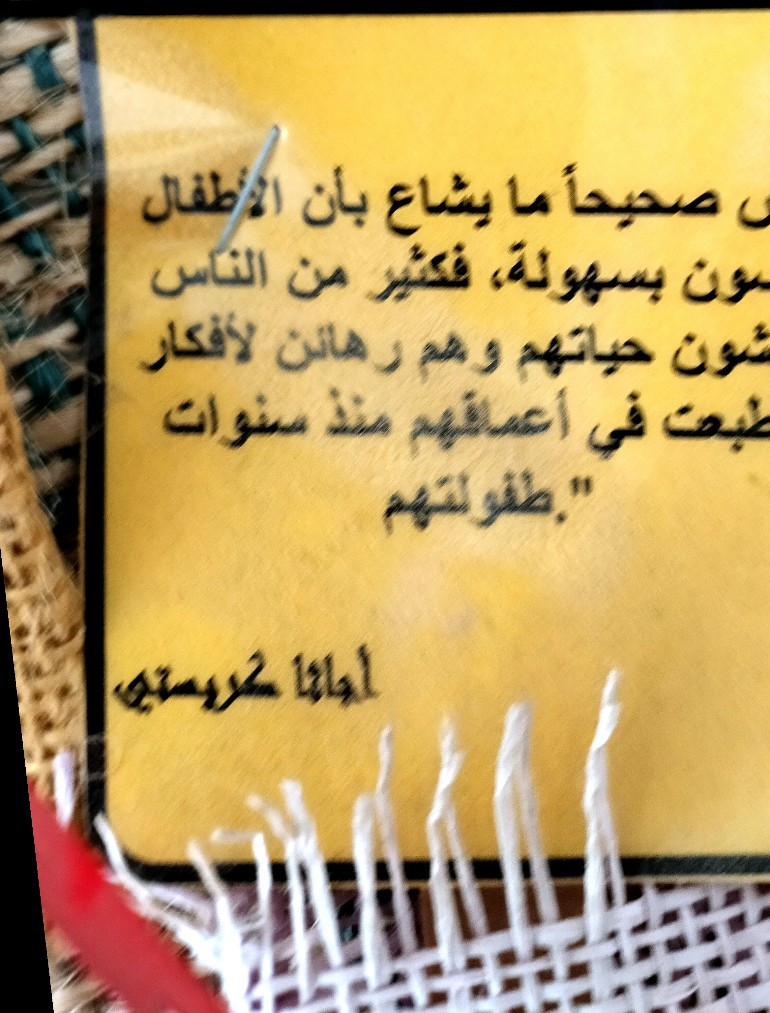 صحيحاً ما يشاع بأن الأطفال
بسهولة، فكثير من الناس
حياتهم وهم رهائن لأفكار
في أعماقهم منذ سنوات
طفولتهم."
أجاثا كريستي